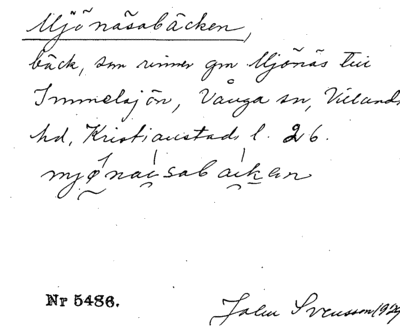 Mjönäsabäcken,
bäck, som rinner gm Mjönäs till
Immelnsjön, Vånga sn, Villands
hd, Kristianstads l. 26.
Nr 5486.
John Svensson 1929